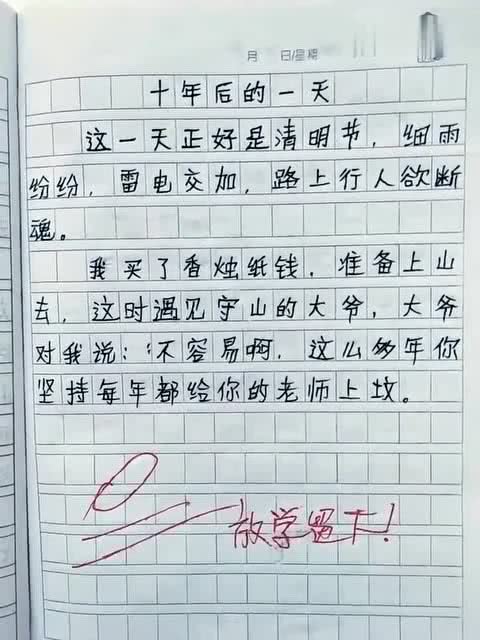 月 日/星期
十年后的一天
这一天正好是清明节，细雨
纷纷，雷电交加，路上行人欲断
魂。
我买了香烛纸钱，准备上山
去，这时遇见守山的大爷，大爷
对我说：“不容易啊，这么多年你
坚持每年都给你的老师上坟。
0
放学留下！